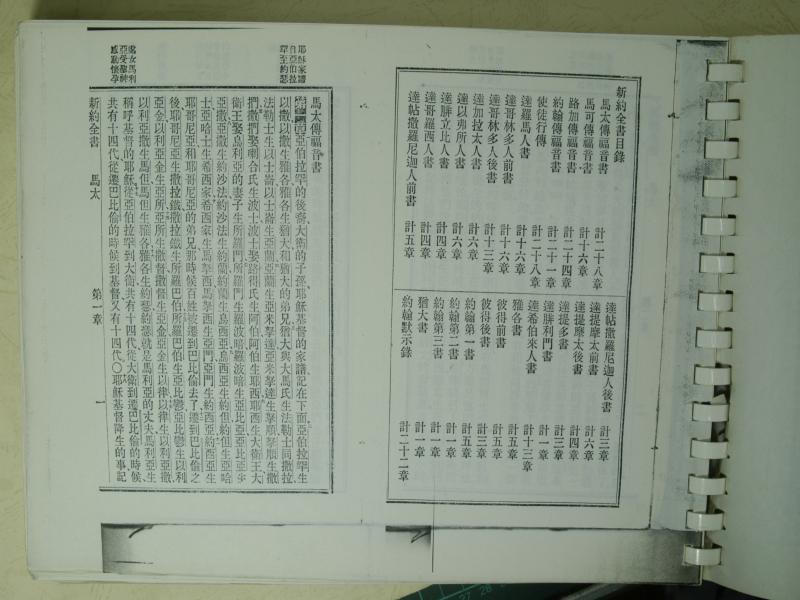 新約全書目錄
馬太傳福音書 計二十八章
馬可傳福音書 計十六章
路加傳福音書 計二十四章
約翰傳福音書 計二十一章
使徒行傳 計二十八章
達羅馬人書 計十六章
達哥林多人前書 計十六章
達哥林多人後書 計十三章
達加拉太人書 計六章
達以弗所人書 計六章
達腓立比人書 計四章
達哥羅西人書 計四章
達帖撒羅尼迦人前書 計五章
達帖撒羅尼迦人後書 計三章
達提摩太前書 計六章
達提摩太後書 計四章
達提多書 計三章
達腓利門書 計一章
達希伯來人書 計十三章
雅各書 計五章
彼得前書 計五章
彼得後書 計三章
約翰第一書 計五章
約翰第二書 計一章
約翰第三書 計一章
猶大書 計一章
約翰默示錄 計二十二章
耶穌家譜
自亞伯拉
罕至約瑟
處女馬利
亞受聖神
感動懷孕
馬太傳福音書
亞伯拉罕的後裔大衛的子孫耶穌基督的家譜記在下面亞伯拉罕生
以撒以撒生雅各雅各生猶大和猶大的弟兄猶大與大馬氏生法勒士同撒拉
法勒士生以士崙以士崙生亞蘭亞蘭生亞米拏達亞米拏達生拏順拏順生撒
捫撒捫娶喇合氏生波士波士娶路得氏生阿伯阿伯生耶西耶西生大衛王大
衛王娶烏利亞的妻子生所羅門所羅門生羅波暗羅波暗生亞比亞亞比亞生
亞撒亞撒生約沙法約沙法生約蘭約蘭生烏西亞烏西亞生約但約但生亞哈
士亞哈士生希西家希西家生馬拏西馬拏西生亞門亞門生約西亞約西亞生
耶哥尼亞和耶哥尼亞的弟兄那時候百姓被遷到巴比倫去了遷到巴比倫之
後耶哥尼亞生撒拉鐵撒拉鐵生所羅巴伯所羅巴伯生亞比鬱亞比鬱生以利
亞金以利亞金生亞所亞所生撒督撒督生亞金亞金生以律以律生以利亞撒
以利亞撒生馬但馬但生雅各雅各生約瑟約瑟就是馬利亞的丈夫馬利亞生
稱呼基督的耶穌從亞伯拉罕到大衛共有十四代從大衛到遷巴比倫的時候
共有十四代從遷巴比倫的時候到基督又有十四代○耶穌基督降生的事記
新約全書 馬太 第一章 一